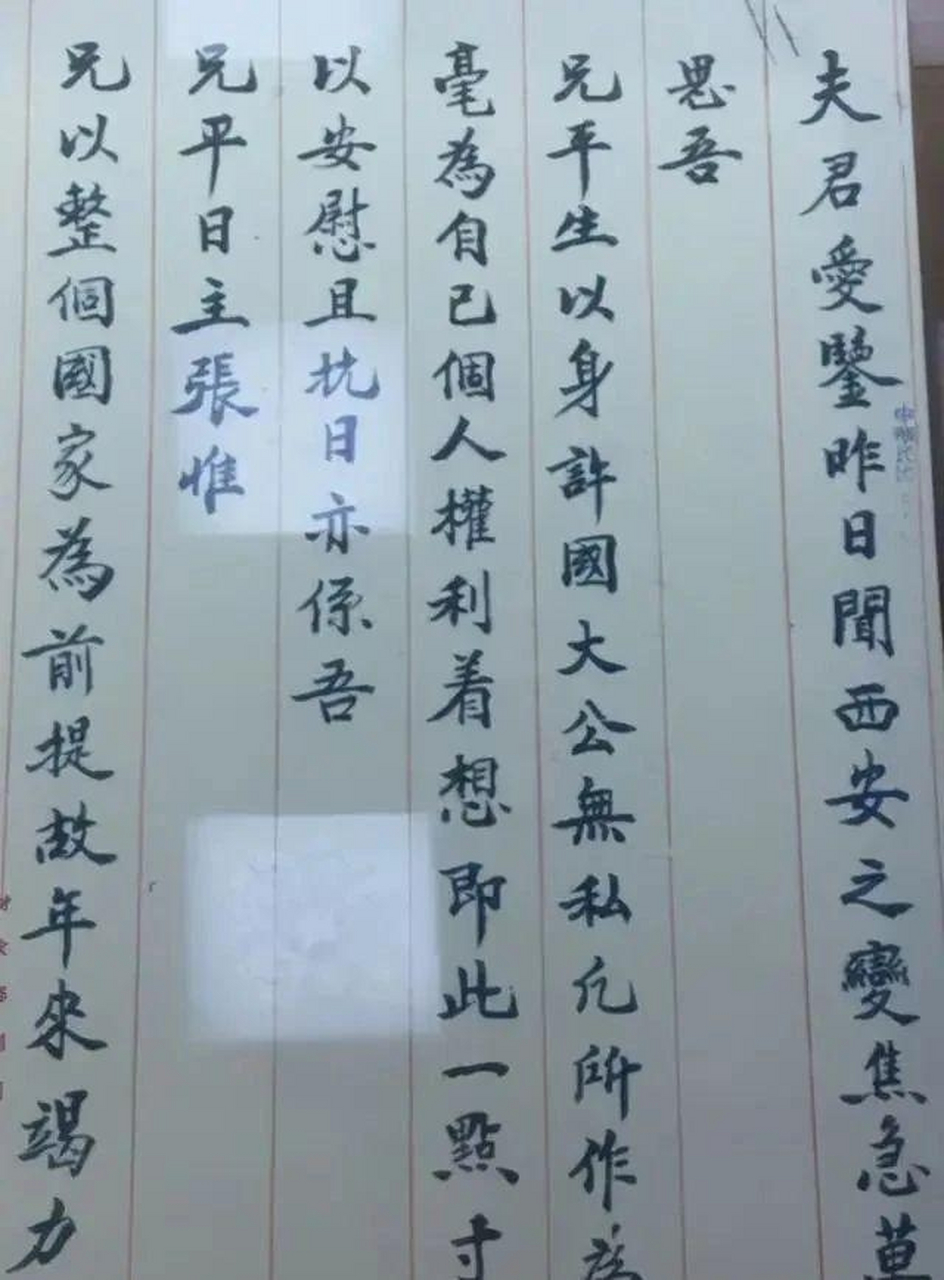 夫君愛鑒昨日聞西安之變焦急萬
思吾
兄平生以身許國大公無私凡所作為
毫為自己個人權利着想即此一點寸
以安慰且抗日亦係吾
兄平日主張惟
兄以整個國家為前提故年來竭力